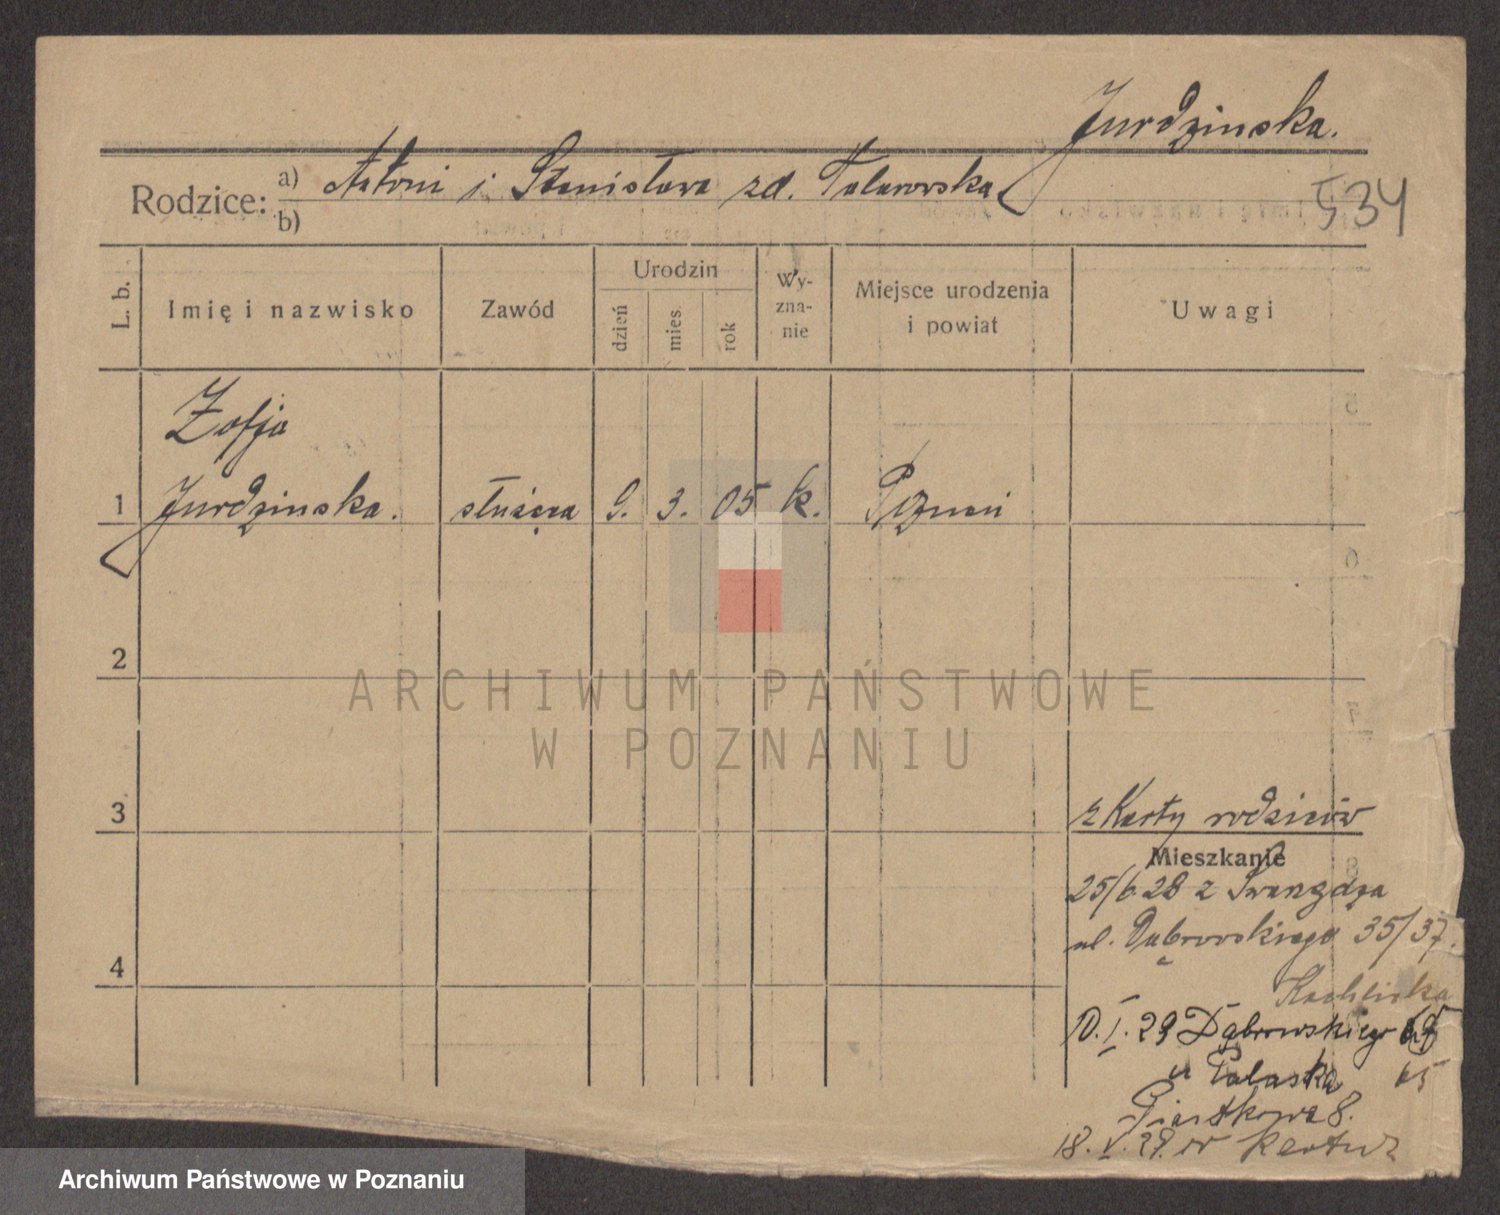 Jurdzinska.
Rodzice: a) Antoni i Stanisława zd. Talarowska
b)
534
L. b.
Imię i nazwisko
Zawód
Urodzin
dzień
mies.
rok
Wy-
zna-
nie
Miejsce urodzenia
i powiat
Uwagi
Zofja
1 Jurdzinska. służąca 9. 3. 05 k. Pozna­ń
2
3
4
z Karty rodziców
Mieszkanie
25/6 28 z Swarzędza
ul. Dąbrowskiego 35/37.
10. I. 29 Dąbrowskiego
u Palaska 65
Piaskowa 8.
18. V. 29. w
ARCHIWUM PAŃSTWOWE
W POZNANIU
Archiwum Państwowe w Poznaniu